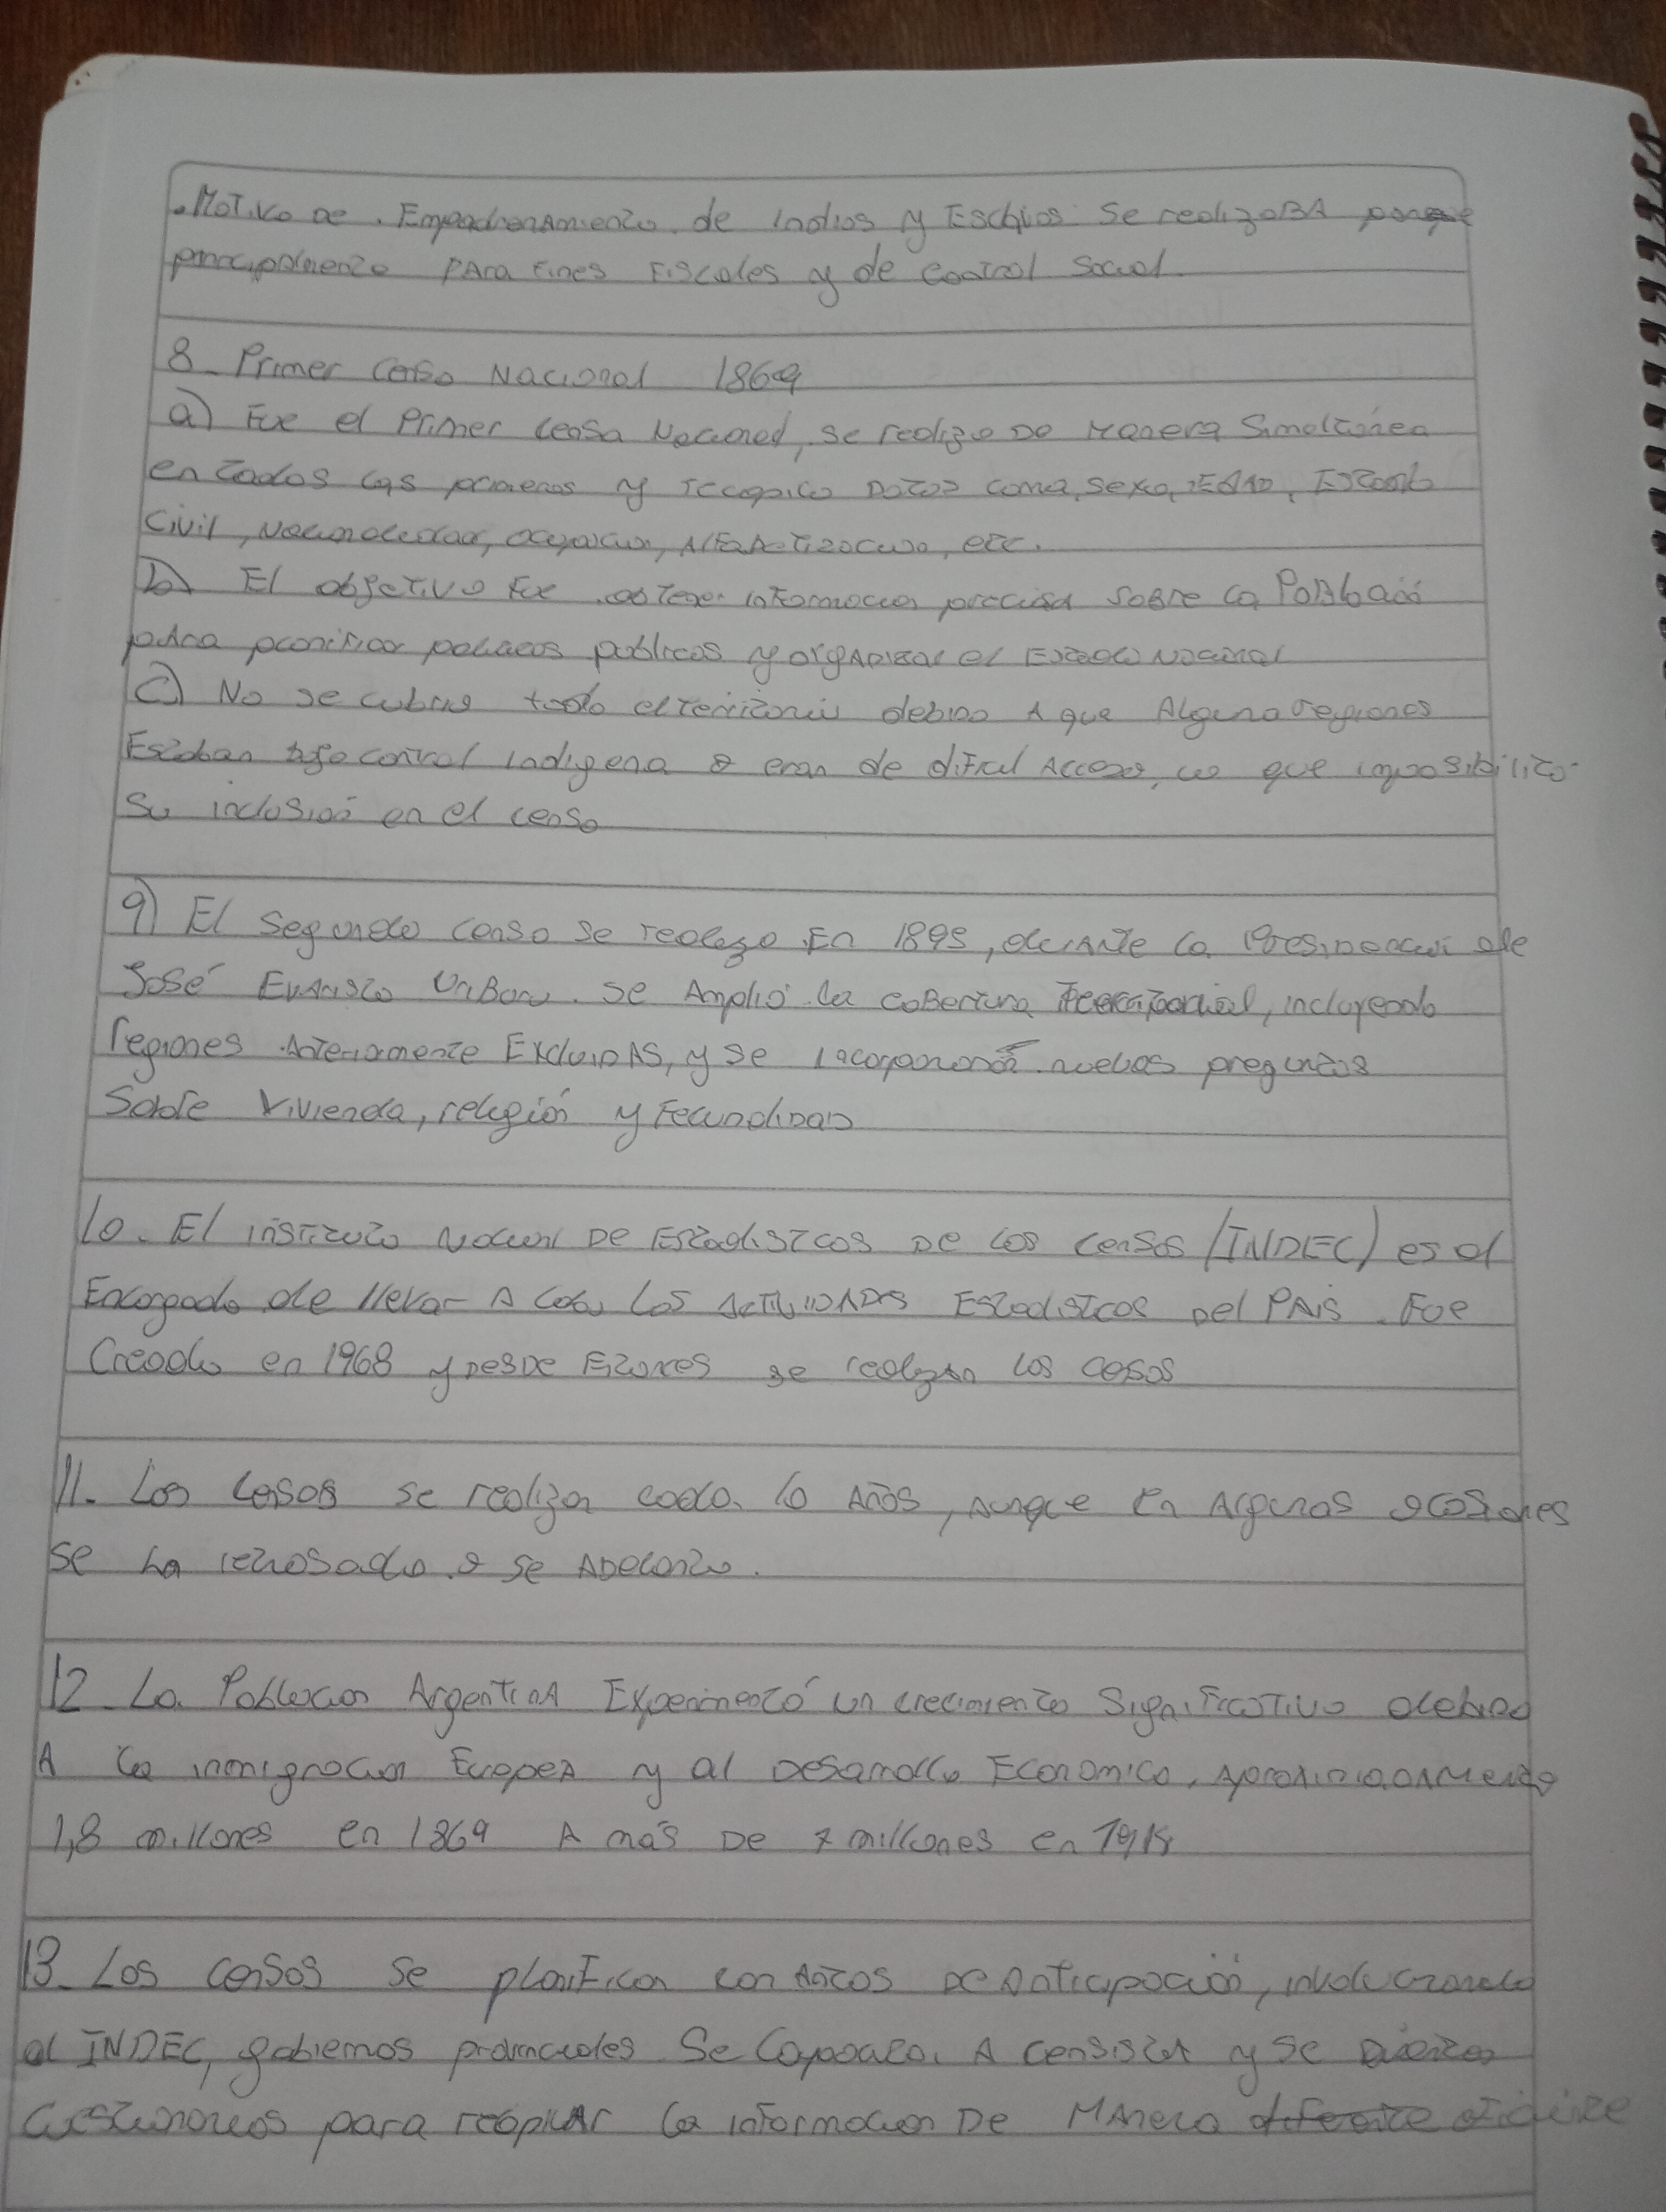 . Motivo de . Empadronamiento. de Indios y Esclavos. Se realizaba porque
principalmente para fines fiscales y de control social.
8 - Primer Censo Nacional 1869
a) Fue el Primer Censo Nacional, se realizo de manera Simultánea
en todas las y recopilo datos como, sexo, EDAD, Estado
Civil, Nacionalidad, ocupación, Alfabetización, etc.
b) El objetivo fue obtener informacion precisa sobre la Població
para planificar politicas publicas y organizar el Estado Nacional
C) No se cubrio todo el territorio debido A que Alguna regiones
Estaban bajo control indigena o eran de dificil Acceso, lo que imposibilito
Su inclusión en el censo
9) El Segundo Censo se realizo En 1895, durante la Presidencia de
José Evaristo Uriburu. Se Amplió la cobertura Territorial, incluyendo
regiones Anteriormente Excluidas, y se incorporaron nuevas preguntas
Sobre Vivienda, religión y Fecundidad
10. El instituto Nacional De Estadisticas De los Censos (INDEC) es el
Encargado de llevar A cabo las Actividades Estadisticas Del País. Fue
Creado en 1968 y desde Entonces se realizan los censos
11. Los Censos se realizan cada 10 Años, aunque En Algunas ocasiones
se ha retrasado o se Adelanto.
12. La Poblacion Argentina Experimentó un crecimiento Significativo debido
A la inmigracion Europea y al Desarrollo Economico, Aproximadamente
1,8 millones en 1869 A más De 7 millones en 1914
13. Los Censos se planifican con De Anticipación, involucrando
al INDEC, gobiernos provinciales Se Capacita. A censista y se
Cuestionarios para recopilar la informacion De Manera diferente eficiente